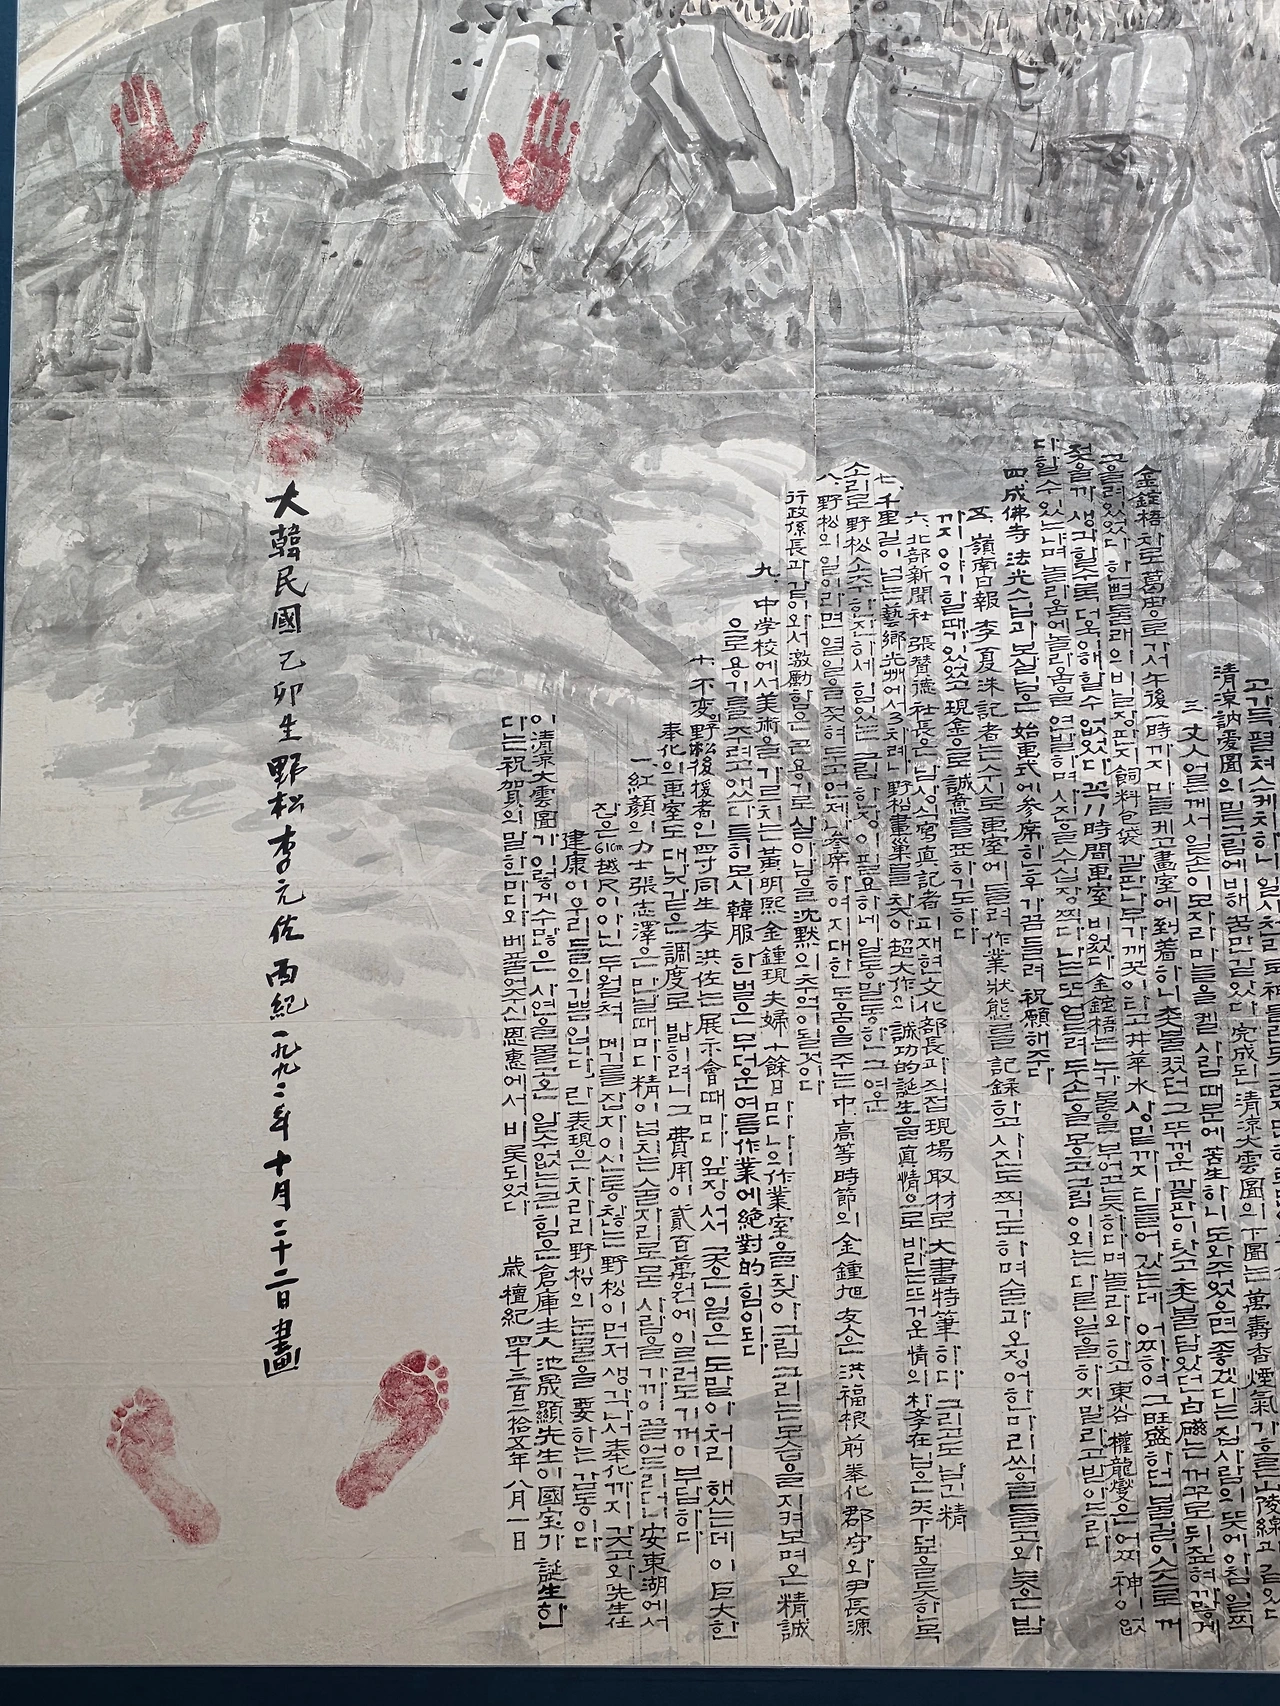 고 가득 펼쳐 스케치하니
清凉訥憂圖의 밑그림에 비해 꿈만 같았다 完成된 淸凉大雲圖의 下圖는 萬壽香煙氣가 흐른 山陵線과 같았다
三. 丈人 얼께서 일손이 모자라 마늘을 캘 사람 때문에 苦生하니 도와주었으면 좋겠다는 집사람의 뜻에 아침 일찍
金錠梧 차로 葛坊으로 가서 午後 一時까지 마늘 캐고 畫室에 到着하니 촛불 켰던 그 두꺼운 깔판이 탓고 촛불 담았던 白磁는 꺼꾸로 뒤집혀 까맣게
그을려 있었다 한 뼘 둘래의 비닐장판지 飼料包袋 깔판나무가 깨끗이 타고 井華水 상 밑까지 타들어 갔는데 어찌하여 그 旺盛하던 불길이 스스로 꺼
졌을까 생각할수록 더욱 이해할 수 없었다 꼬박 八時間 畫室 비웠다 金錠梧는 누가 물을 부어 끈 듯하다며 놀라와 하고 東谷 權龍燮은 어찌 神이 없
다 할 수 있는냐며 놀라움에 놀라움을 연발하며 사진을 수십장 찍다 나는 또 엎드려 두 손을 모으고 그림 이외는 다른 일을 하지 말라고 받아드리다
四. 成佛寺 法光스님과 보살님은 始畫式에 參席한 후 가끔 들려 祝願해 주다
五. 嶺南日報 李夏洙 記者는 수시로 畫室에 들려 作業狀態를 記録하고 사진도 찍기도 하며 술과 오징어 한마리씩을 들고와 늦은 밤
까지 이야기할 때가 있었고 現金으로 誠意를 표하기도 하다
六. 北部新聞社 張贊德 社長은 남상식 寫真記者 피재현 文化部長과 직접 現場 取材로 大書特筆하다 그리고도 남긴 精
七. 千里길이 넘는 藝鄉 光州에서 3차례나 野松畫巢를 찾아 超大作의 誠功的 誕生을 真情으로 바라는 뜨거운 情의 朴李在님은 天下 덮을 듯한 목
소리로 野松 소주 한잔 하서 힘있는 그림 한장이 필요하네 일동 말동한 그 여운
八. 野松의 일이라면 열일을 젖혀두고 언제나 參席하여 지대한 도움을 주는 中 高等時節의 金鍾旭 友人은 洪福根 前 奉化郡守와 尹長源
行政係長과 같이와서 激勵함은 큰 용기로 살아남을 沈默의 추억이 될 것이다
九. 中学校에서 美術을 가르치는 黃明熙 金鍾現 夫婦 十餘日마다 나의 作業室을 찾아 그림 그리는 모습을 지켜보며 온 精誠
으로 용기를 주려고 앴썼다 특히 모시 韓服 한 벌은 무더운 여름 作業에 絕對的 힘이 되다
十. 不変 野松後援者인 四寸同生 李洪佐는 展示會 때마다 앞장서서 궂은 일은 도맡아 처리했는데 이 巨大한
奉化의 畫室도 대낮같은 調度로 밝히려니 그 費用이 貳百萬원에 이르러도 기꺼이 부담하다
一. 紅顔의 力士 張志澤은 만날 때마다 精이 넘치는 술자리로 뭇 사람을 기꺼이 끌어드리더니 安東湖에서
잡은 61cm 越尺이 아닌 두 월척 메기를 잡자 이신동창는 野松이 먼저 생각나서 奉化까지 갖고와 「先生任
建康이 우리들의 기쁨입니다」란 表現은 차라리 野松의 눈물을 要하는 감동이다
이 淸凉大雲圖가 이렇게 수많은 사연을 몰고온 알 수 없는 큰 힘은 倉庫主人 池晟顯先生이 國宝가 誕生한
다는 祝賀의 말 한마디와 베풀어주신 恩惠에서 비롯되었다 歲檀紀 四千三百二拾五年 八月一日
大韓民國 乙卯生 野松 李元佐 西紀 一九九二年 十月二十二日 畫